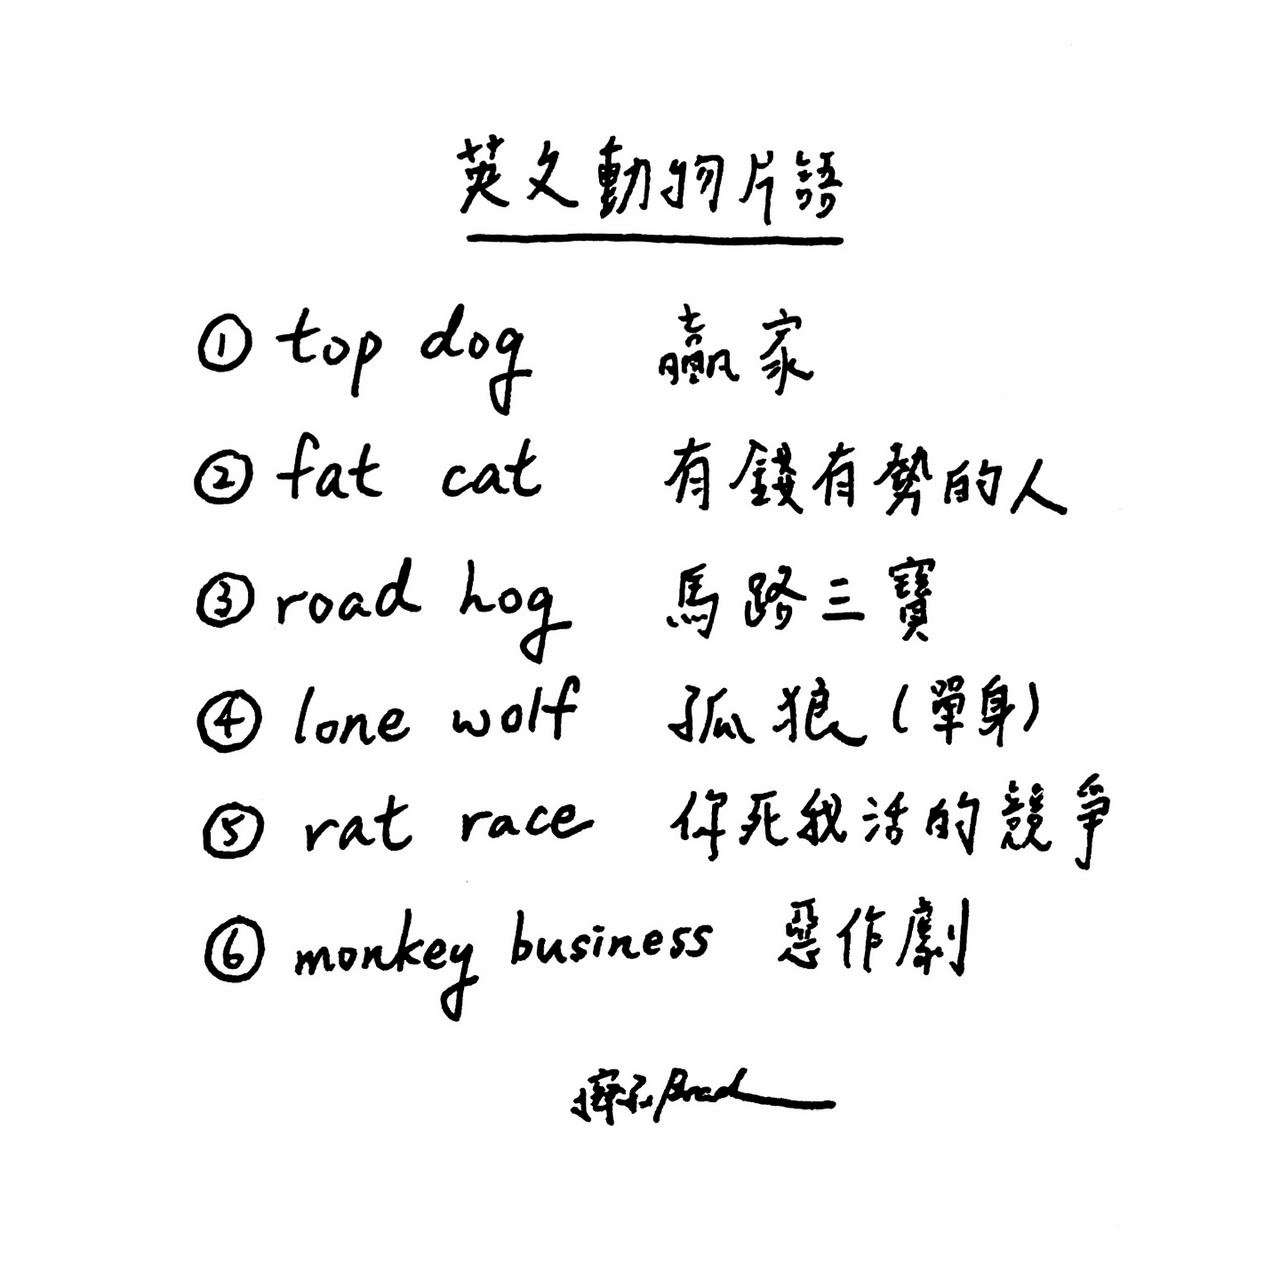 英文動物片語
① top dog 贏家
② fat cat 有錢有勢的人
③ road hog 馬路三寶
④ lone wolf 孤狼（單身）
⑤ rat race 你死我活的競爭
⑥ monkey business 惡作劇
Brad